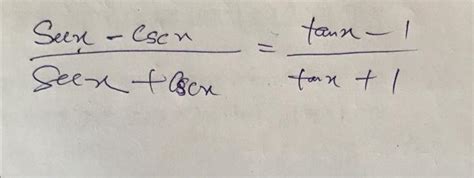 Secx - Cscx / Secx + Cscx = tanx - 1 / tanx + 1